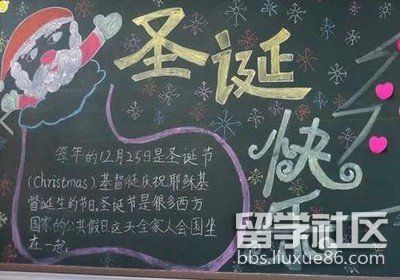 圣诞
快乐
每年的12月25日是圣诞节
(Christmas).基督徒庆祝耶稣基
督诞生的节日,圣诞节是很多西方
国家的公共假日这天全家人会围坐
在一起
留学社区
bbs.liuxue86.com